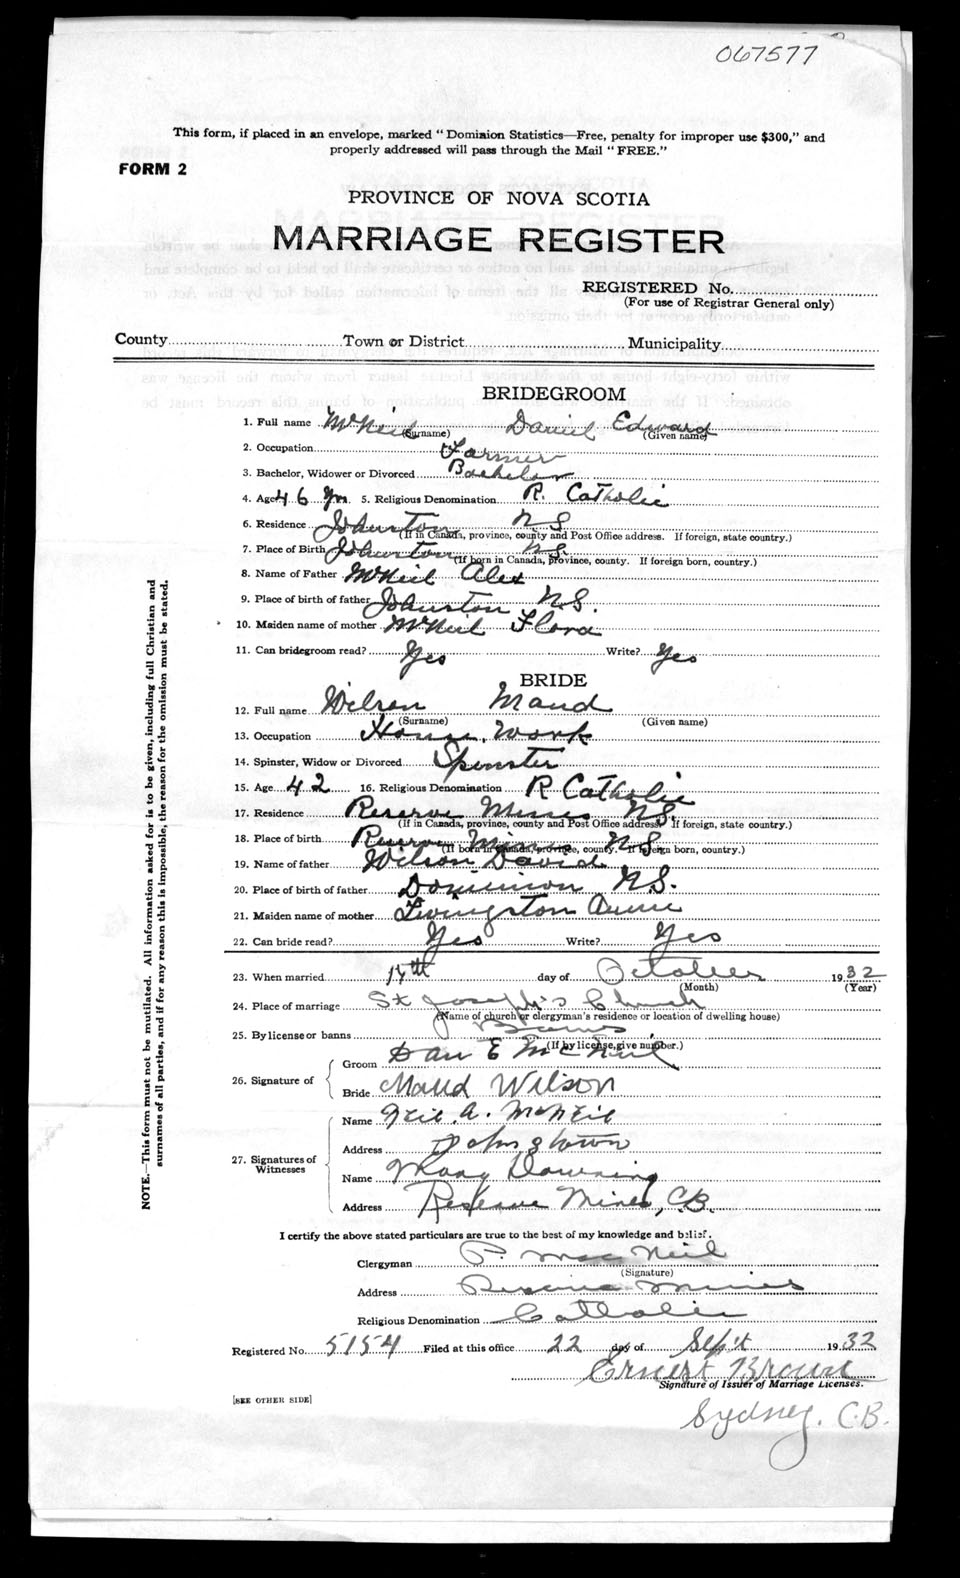 067577
This form, if placed in an envelope, marked "Dominion Statistics—Free, penalty for improper use $300," and
properly addressed will pass through the Mail "FREE."
FORM 2
PROVINCE OF NOVA SCOTIA
MARRIAGE REGISTER
REGISTERED No.
(For use of Registrar General only)
County Town or District Municipality
BRIDEGROOM
1. Full name McNeil Daniel Edward
(Surname) (Given name)
2. Occupation Farmer
3. Bachelor, Widower or Divorced Bachelor
4. Age 46 yrs 5. Religious Denomination R. Catholic
6. Residence Johnston NS
(If in Canada, province, county and Post Office address. If foreign, state country.)
7. Place of Birth Johnston NS.
(If born in Canada, province, county. If foreign born, country.)
8. Name of Father McNeil Alex
9. Place of birth of father Johnston N.S.
10. Maiden name of mother McNeil Flora
11. Can bridegroom read? Yes Write? Yes
BRIDE
12. Full name Wilson Maud
(Surname) (Given name)
13. Occupation House Work
14. Spinster, Widow or Divorced Spinster
15. Age 42 16. Religious Denomination R Catholic
17. Residence Reserve Mines N.S.
(If in Canada, province, county and Post Office address. If foreign, state country.)
18. Place of birth Reserve Mines N.S.
(If born in Canada, province, county. If foreign born, country.)
19. Name of father Wilson David
20. Place of birth of father Dominion N.S.
21. Maiden name of mother Livingston Annie
22. Can bride read? Yes Write? Yes
23. When married day of October 1932
(Month) (Year)
24. Place of marriage St Joseph's Church
(Name of church or clergyman's residence or location of dwelling house)
25. By license or banns Banns
(If by license, give number.)
26. Signature of
Groom Dan E McNeil
Bride Maud Wilson
27. Signatures of Witnesses
Name Neil A. McNeil
Address Johnstown
Name Mary Downing
Address Reserve Mines, C.B.
I certify the above stated particulars are true to the best of my knowledge and belief.
Clergyman P. MacNeil
(Signature)
Address Reserve Mines
Religious Denomination Catholic
Registered No. 5154 Filed at this office 22 day of Sept 1932
Ernest Brown
Signature of Issuer of Marriage Licenses.
[SEE OTHER SIDE]
Sydney. C.B.
NOTE.—This form must not be mutilated. All information asked for is to be given, including full Christian and
surnames of all parties, and if for any reason this is impossible, the reason for the omission must be stated.